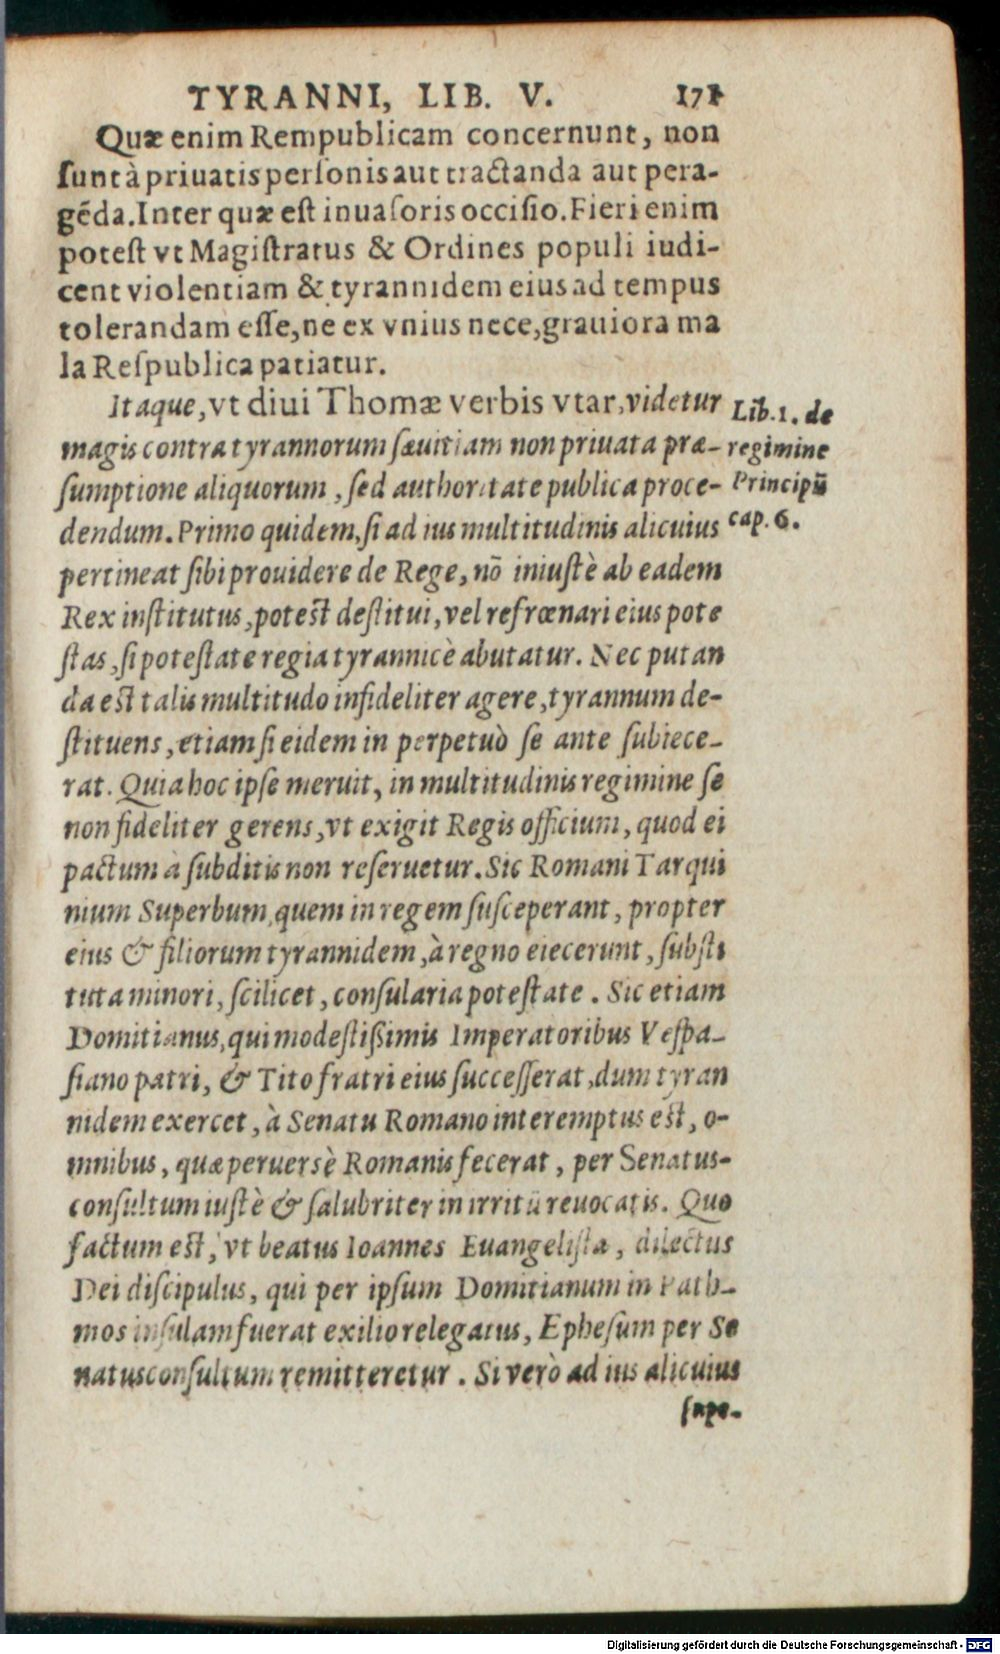 TYRANNI, LIB. V. 171
Quæ enim Rempublicam concernunt, non
ſunt à priuatis perſonis aut tractanda aut pera-
gẽda. Inter quæ eſt inuaſoris occiſio. Fieri enim
poteſt vt Magiſtratus & Ordines populi iudi-
cent violentiam & tyrannidem eius ad tempus
tolerandam eſſe, ne ex vnius nece, grauiora ma
la Reſpublica patiatur.
Itaque, vt diui Thomæ verbis vtar, videtur
magis contra tyrannorum ſæuitiam non priuata præ-
ſumptione aliquorum, ſed authoritate publica proce-
dendum. Primo quidem, ſi ad ius multitudinis alicuius
pertineat ſibi prouidere de Rege, nõ iniuſtè ab eadem
Rex inſtitutus, poteſt deſtitui, vel refrœnari eius pote
ſtas, ſi poteſtate regia tyrannicè abutatur. Nec putan
da eſt talis multitudo infideliter agere, tyrannum de-
ſtituens, etiam ſi eidem in perpetuò ſe ante ſubiece-
rat. Quia hoc ipſe meruit, in multitudinis regimine ſe
non fideliter gerens, vt exigit Regis officium, quod ei
pactum à ſubditis non reſeruetur. Sic Romani Tarqui
nium Superbum, quem in regem ſuſceperant, propter
eius & filiorum tyrannidem, à regno eiecerunt, ſubſti
tuta minori, ſcilicet, conſularia poteſtate. Sic etiam
Domitianus, qui modeſtißimis Imperatoribus Veſpa-
ſiano patri, & Tito fratri eius ſucceſſerat, dum tyran
nidem exercet, à Senatu Romano interemptus eſt, o-
mnibus, quæ peruersè Romanis fecerat, per Senatus-
conſultum iuſtè & ſalubriter in irritũ reuocatis. Quo
factum eſt, vt beatus Ioannes Euangeliſta, dilectus
Dei diſcipulus, qui per ipſum Domitianum in Path-
mos inſulam fuerat exilio relegatus, Epheſum per Se
natusconſultum remitteretur. Si verò ad ius alicuius
ſupe-
Lib. 1. de
regimine
Principũ
cap. 6.
Digitalisierung gefördert durch die Deutsche Forschungsgemeinschaft - DFG